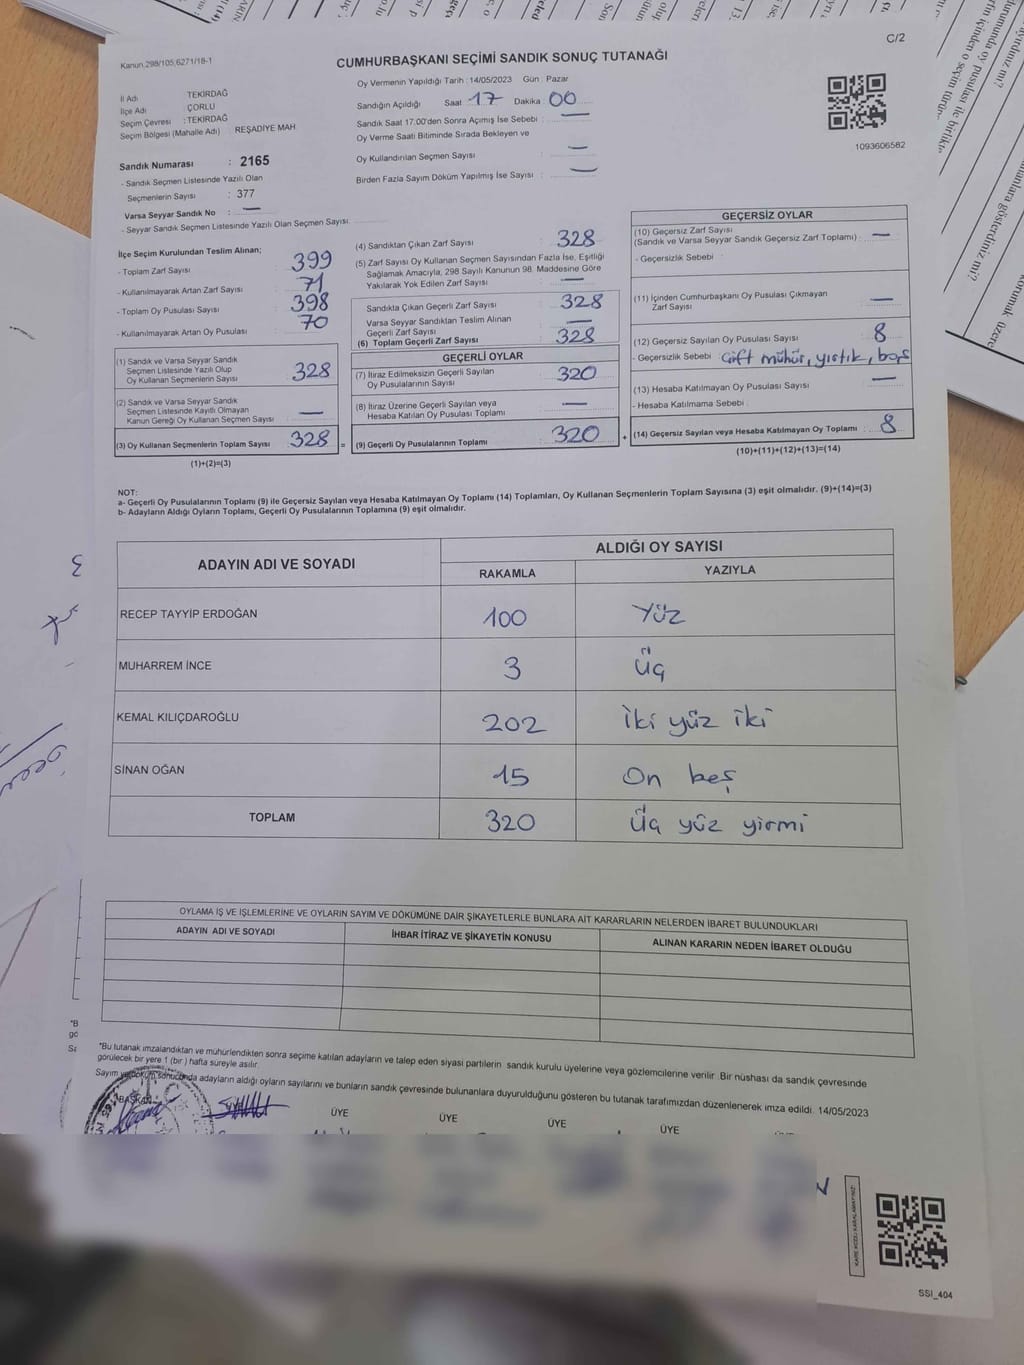 C/2
Kanun,298/105,6271/18-1
CUMHURBAŞKANI SEÇİMİ SANDIK SONUÇ TUTANAĞI
İl Adı TEKİRDAĞ
İlçe Adı ÇORLU
Seçim Çevresi : TEKİRDAĞ
Seçim Bölgesi (Mahalle Adı) : REŞADİYE MAH.
Sandık Numarası : 2165
- Sandık Seçmen Listesinde Yazılı Olan
Seçmenlerin Sayısı : 377
Varsa Seyyar Sandık No : —
- Seyyar Sandık Seçmen Listesinde Yazılı Olan Seçmen Sayısı
Oy Vermenin Yapıldığı Tarih : 14/05/2023 Gün : Pazar
Sandığın Açıldığı Saat 17 Dakika : 00
Sandık Saat 17:00'den Sonra Açımış İse Sebebi : —
Oy Verme Saati Bitiminde Sırada Bekleyen ve
Oy Kullandırılan Seçmen Sayısı : —
Birden Fazla Sayım Döküm Yapılmış İse Sayısı : —
1093606582
İlçe Seçim Kurulundan Teslim Alınan;
- Toplam Zarf Sayısı 399
- Kullanılmayarak Artan Zarf Sayısı 71
- Toplam Oy Pusulası Sayısı 398
- Kullanılmayarak Artan Oy Pusulası 70
(1) Sandık ve Varsa Seyyar Sandık
Seçmen Listesinde Yazılı Olup
Oy Kullanan Seçmenlerin Sayısı 328
(2) Sandık ve Varsa Seyyar Sandık
Seçmen Listesinde Kayıtlı Olmayan
Kanun Gereği Oy Kullanan Seçmen Sayısı —
(3) Oy Kullanan Seçmenlerin Toplam Sayısı 328 =
(1)+(2)=(3)
(4) Sandıktan Çıkan Zarf Sayısı 328
(5) Zarf Sayısı Oy Kullanan Seçmen Sayısından Fazla İse, Eşitliği
Sağlamak Amacıyla, 298 Sayılı Kanunun 98. Maddesine Göre
Yakılarak Yok Edilen Zarf Sayısı : —
Sandıkta Çıkan Geçerli Zarf Sayısı 328
Varsa Seyyar Sandıktan Teslim Alınan
Geçerli Zarf Sayısı —
(6) Toplam Geçerli Zarf Sayısı 328
GEÇERLİ OYLAR
(7) İtiraz Edilmeksizin Geçerli Sayılan
Oy Pusulalarının Sayısı 320
(8) İtiraz Üzerine Geçerli Sayılan veya
Hesaba Katılan Oy Pusulası Toplamı —
(9) Geçerli Oy Pusulalarının Toplamı 320 +
GEÇERSİZ OYLAR
(10) Geçersiz Zarf Sayısı
(Sandık ve Varsa Seyyar Sandık Geçersiz Zarf Toplamı) : —
- Geçersizlik Sebebi :
(11) İçinden Cumhurbaşkanı Oy Pusulası Çıkmayan
Zarf Sayısı —
(12) Geçersiz Sayılan Oy Pusulası Sayısı 8
- Geçersizlik Sebebi : Çift mühür, yırtık, boş
(13) Hesaba Katılmayan Oy Pusulası Sayısı —
- Hesaba Katılmama Sebebi :
(14) Geçersiz Sayılan veya Hesaba Katılmayan Oy Toplamı : 8
(10)+(11)+(12)+(13)=(14)
NOT:
a- Geçerli Oy Pusulalarının Toplamı (9) ile Geçersiz Sayılan veya Hesaba Katılmayan Oy Toplamı (14) Toplamları, Oy Kullanan Seçmenlerin Toplam Sayısına (3) eşit olmalıdır. (9)+(14)=(3)
b- Adayların Aldığı Oyların Toplamı, Geçerli Oy Pusulalarının Toplamına (9) eşit olmalıdır.
ADAYIN ADI VE SOYADI ALDIĞI OY SAYISI
RAKAMLA YAZIYLA
RECEP TAYYİP ERDOĞAN 100 Yüz
MUHARREM İNCE 3 Üç
KEMAL KILIÇDAROĞLU 202 İki yüz iki
SİNAN OĞAN 15 On beş
TOPLAM 320 Üç yüz yirmi
OYLAMA İŞ VE İŞLEMLERİNE VE OYLARIN SAYIM VE DÖKÜMÜNE DAİR ŞİKAYETLERLE BUNLARA AİT KARARLARIN NELERDEN İBARET BULUNDUKLARI
ADAYIN ADI VE SOYADI İHBAR İTİRAZ VE ŞİKAYETİN KONUSU ALINAN KARARIN NEDEN İBARET OLDUĞU
*Bu tutanak imzalandıktan ve mühürlendikten sonra seçime katılan adayların ve talep eden siyasi partilerin sandık kurulu üyelerine veya gözlemcilerine verilir. Bir nüshası da sandık çevresinde
görülecek bir yere 1 (bir) hafta süreyle asılır.
Sayım ve döküm sonucunda adayların aldığı oyların sayılarını ve bunların sandık çevresinde bulunanlara duyurulduğunu gösteren bu tutanak tarafımızdan düzenlenerek imza edildi. 14/05/2023
BAŞKAN ÜYE ÜYE ÜYE ÜYE ÜYE
SSI_404